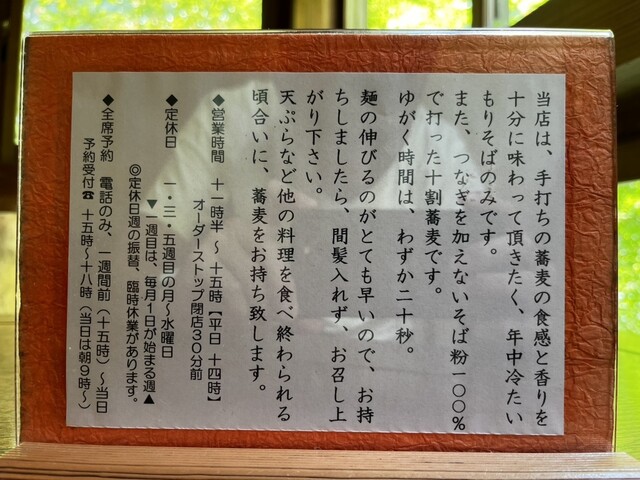 当店は、手打ちの蕎麦の食感と香りを
十分に味わって頂きたく、年中冷たい
もりそばのみです。
また、つなぎを加えないそば粉一〇〇%
で打った十割蕎麦です。
ゆがく時間は、わずか二十秒。
麺の伸びるのがとても早いので、お持
ちしましたら、間髪入れず、お召し上
がり下さい。
天ぷらなど他の料理を食べ終わられる
頃合いに、蕎麦をお持ち致します。
◆営業時間 十一時半〜十五時【平日 十四時】
オーダーストップ閉店30分前
◆定休日 一・三・五週目の月〜水曜日
▼一週目は、毎月1日が始まる週▲
◎定休日週の振替、臨時休業があります。
◆全席予約 電話のみ、一週間前(十五時)〜当日
予約受付☎ 十五時〜十八時(当日は朝9時〜)